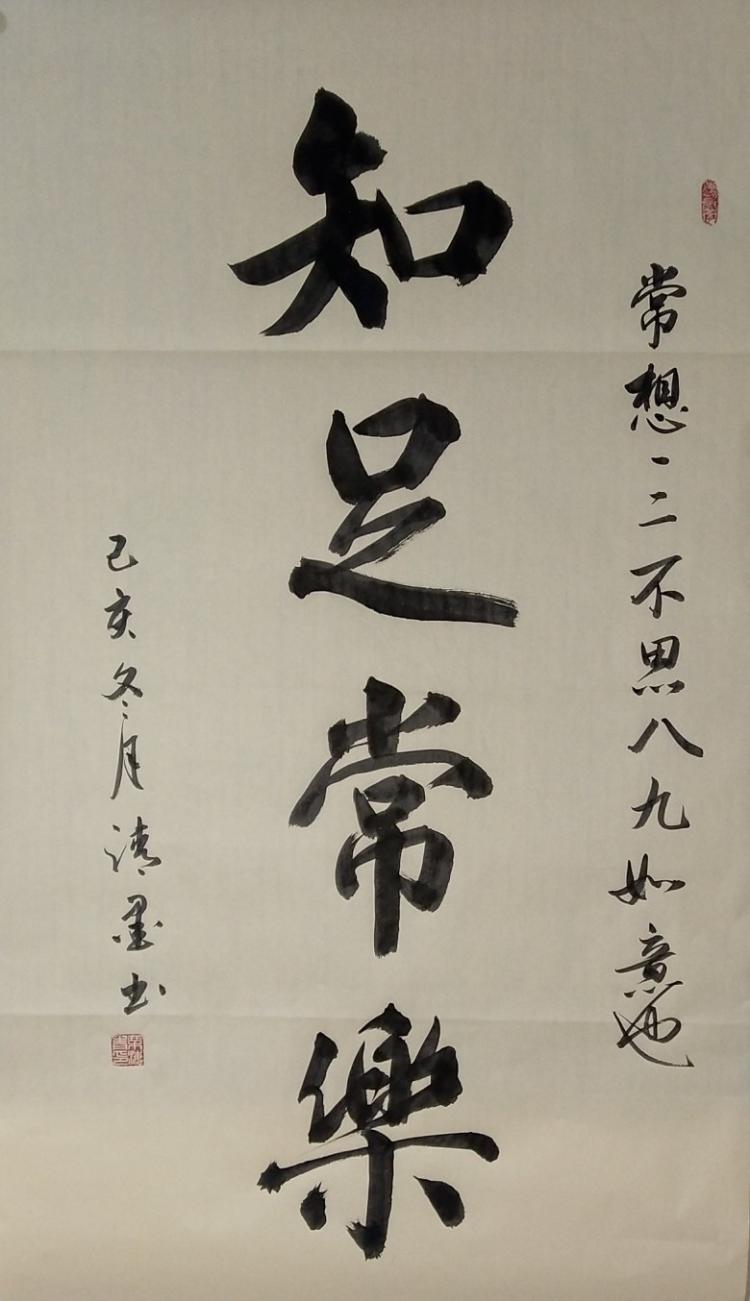 常想一二不思八九如意也
知足常樂
己亥冬月清墨书